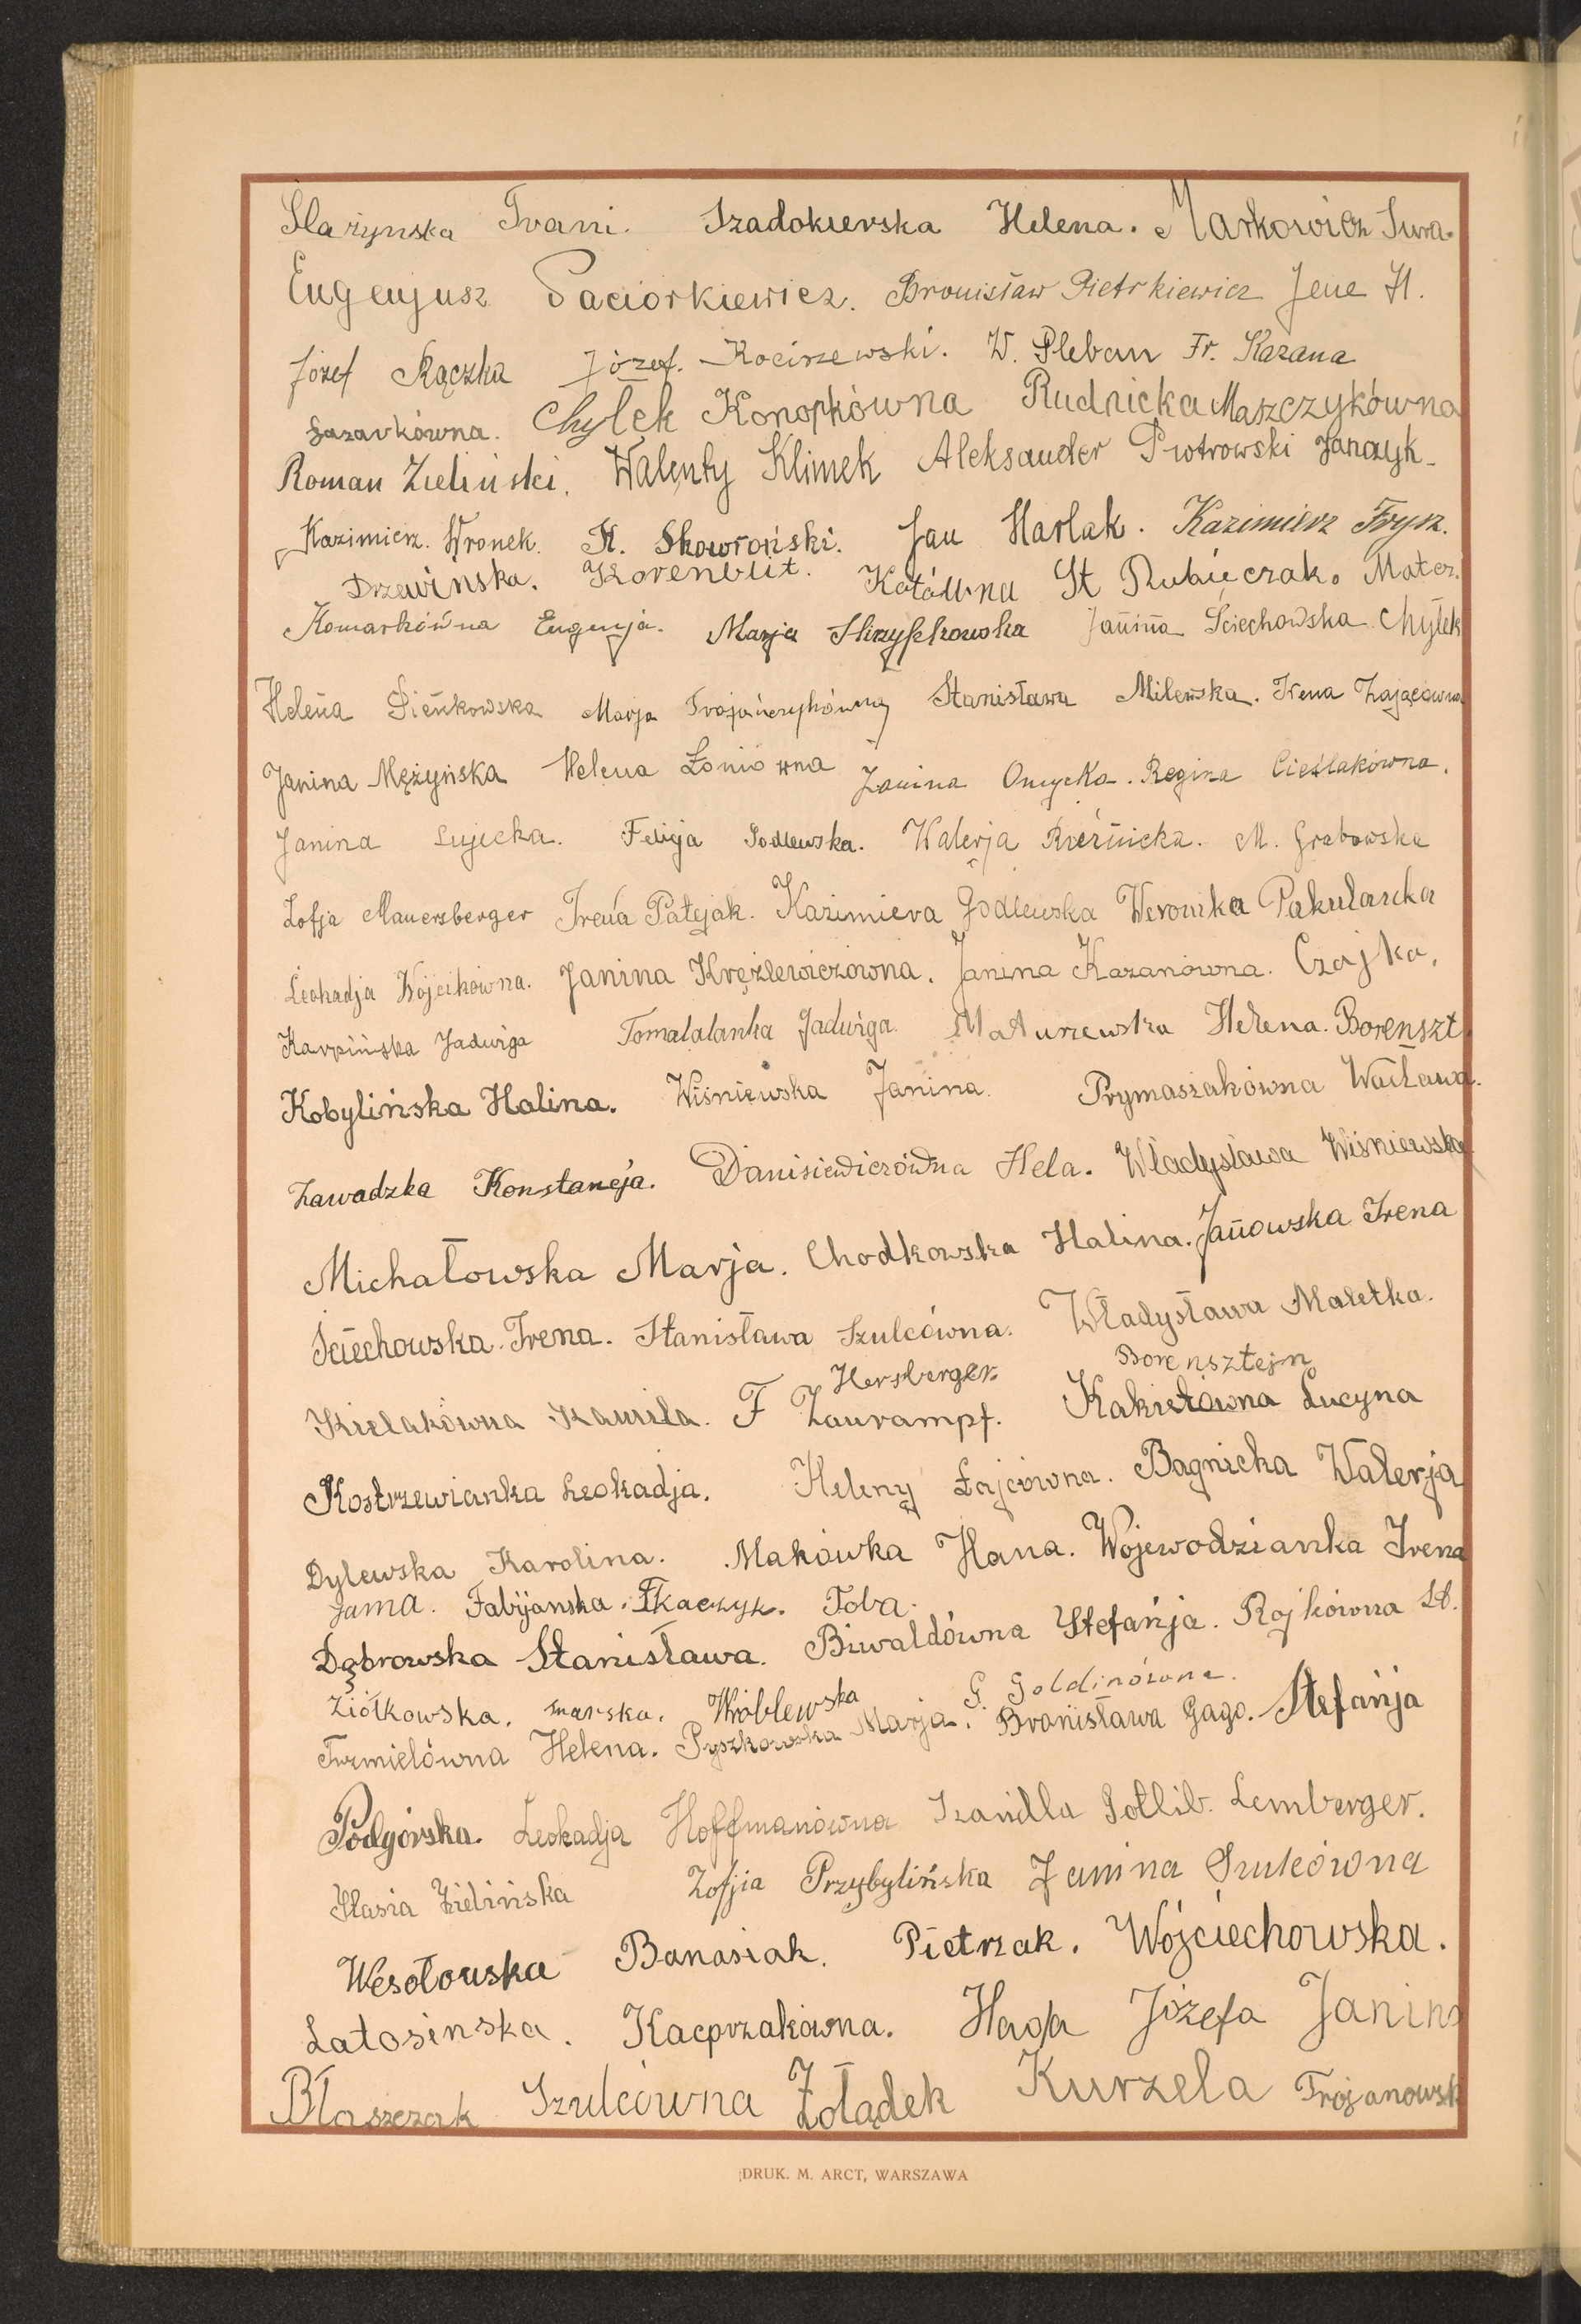 Ślarzynska Irani. Szadokierska Helena. Markowicz Sura.
Eugenjusz Paciorkiewicz. Bronisław Pietrkiewicz Jene H.
Józef Rączka Józef. Kociszewski. W. Pleban Fr. Kazana
Łazarkówna. Chyłek Konopkówna Rudnicka Maszczykówna
Roman Zieliński. Walenty Klimek Aleksander Piotrowski Janczyk
Kazimierz. Wronek. K. Skowroński. Jan Harlak. Kazimierz Frysz.
Drzewińska. Korenblit. Kotówna St Rubieczak. Mater.
Komarkówna Eugenja. Marja Skrzypkowska Janina Ściechowska Chyłek
Helena Pieńkowska Marja Trojańczykówna Stanisława Milewska. Irena Zającówna
Janina Mężyńska Helena Łoniówna Janina Onycka. Regina Cieślakówna.
Janina Sujecka. Felicja Podlewska. Walerja Rześnicka. M. Grabowska
Zofja Mauersberger Irena Patejak. Kazimiera Godlewska Weronika Pakulancka
Leokadja Wójcikówna. Janina Krężlewiczówna. Janina Kazanówna. Czajka.
Karpińska Jadwiga Tomalalanka Jadwiga. Maturzewska Helena. Borenszt
Kobylińska Halina. Wiśniewska Janina. Prymasiakówna Wacława.
Zawadzka Konstancja. Danisiewiczówna Hela. Władysława Wiśniewska
Michałowska Marja. Chodkowska Halina. Janowska Irena
Ściechowska. Irena. Stanisława Szulcówna. Władysława Maletka.
Hersberger. Borensztejn
Kielakówna Kamila. F Zaurampf. Kakietówna Lucyna
Kostrzewianka Leokadja. Heleny Łajcówna. Bagnicka Walerja
Dylewska Karolina. Makówka Hana. Wojewodzianka Irena
Jama. Fabijanska. Tkaczyk. Toba.
Dąbrowska Stanisława. Biwaldówna Stefanja. Rojkówna St.
Ziółkowska. marska. Wróblewska G. Goldinówna.
Trzmielówna Helena. Pyszkowska Marja. Bronisława Gago. Stefanja
Podgórska. Leokadja Hoffmanówna Izandla Gotlib. Lemberger.
Stasia Zielińska Zofjia Przybylińska Janina Szulcówna
Wesołowska Banasiak. Pietrzak. Wójciechowska.
Latosinska. Kacprzakówna. Haga Józefa Janina
Błaszczak Szulcówna Żołądek Kurzela Trojanowsk
DRUK. M. ARCT, WARSZAWA